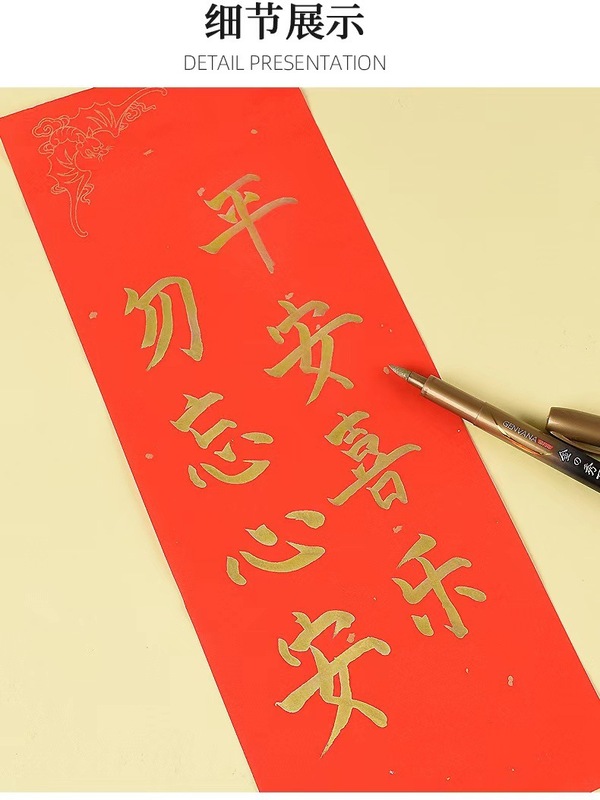 细节展示
DETAIL PRESENTATION
平安喜乐
勿忘心安
GENVANA
金の